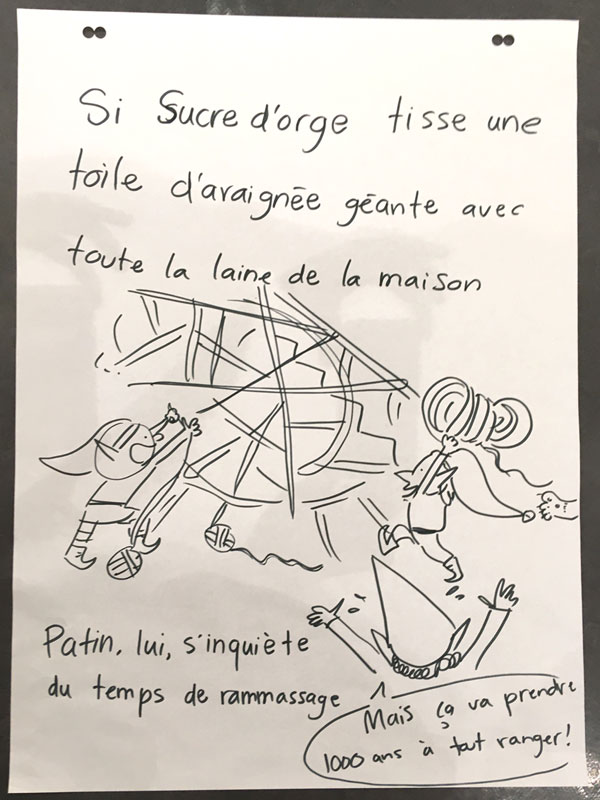 Si Sucre d'orge tisse une
toile d'araignée géante avec
toute la laine de la maison
Patin, lui, s'inquiète
du temps de rammassage
Mais ça va prendre
1000 ans à tout ranger!